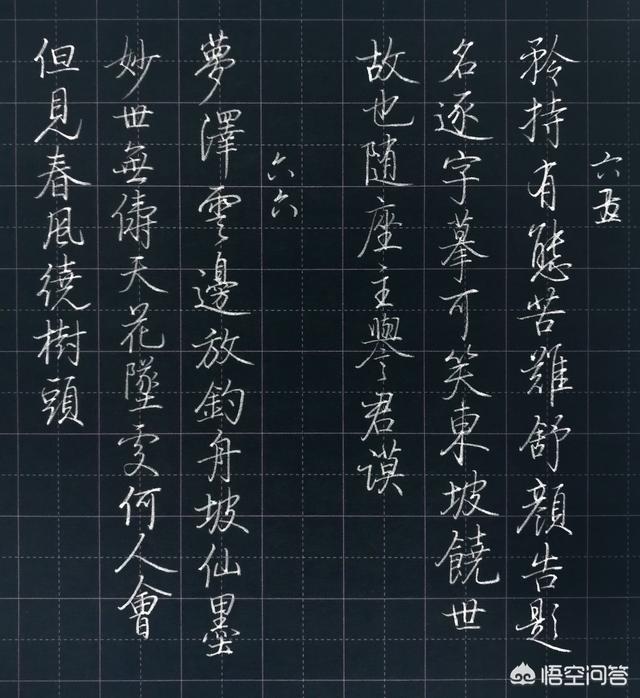 六五
矜持有態苦難舒顏告題
名逐字摹可笑東坡饒世
故也随座主譽君謨
六六
夢澤雲邊放釣舟坡仙墨
妙世無儔天花墜處何人會
但見春風繞樹頭
悟空问答